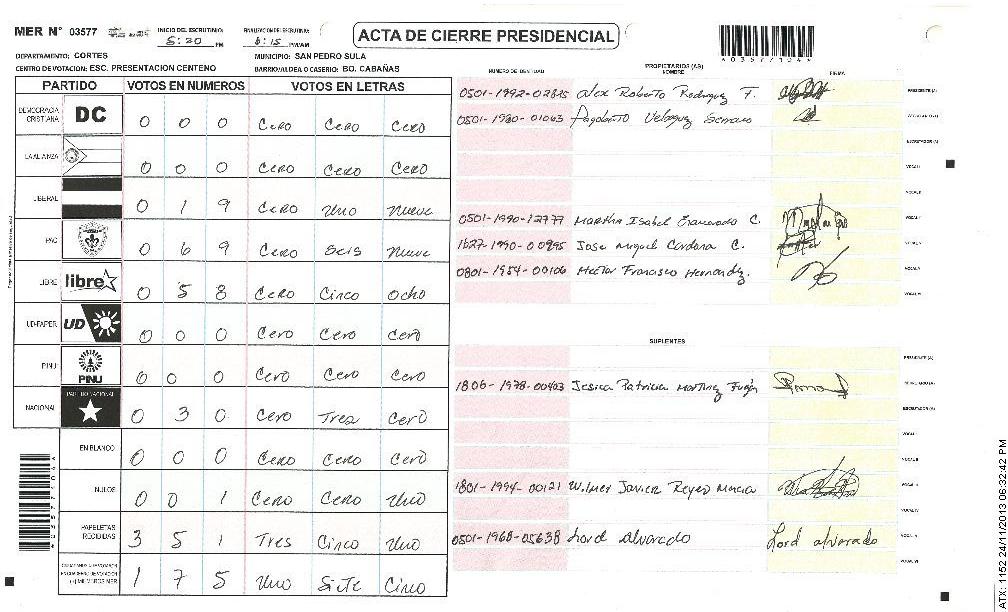 MER N° 03577
INICIO DEL ESCRUTINIO: 5:20 PM
FINALIZACION DEL ESCRUTINIO: 6:15 PM/AM
ACTA DE CIERRE PRESIDENCIAL
*03577104*
DEPARTAMENTO: CORTES
MUNICIPIO: SAN PEDRO SULA
CENTRO DE VOTACION: ESC. PRESENTACION CENTENO
BARRIO/ALDEA O CASERIO: BO. CABAÑAS
PARTIDO VOTOS EN NUMEROS VOTOS EN LETRAS
DEMOCRACIA CRISTIANA DC 0 0 0 Cero Cero Cero
LA ALIANZA 0 0 0 Cero Cero Cero
LIBERAL 0 1 9 Cero Uno Nueve
PAC 0 6 9 Cero Seis Nueve
LIBRE libre 0 5 8 Cero Cinco Ocho
UD-FAPER UD 0 0 0 Cero Cero Cero
PINU PINU 0 0 0 Cero Cero Cero
NACIONAL PARTIDO NACIONAL 0 3 0 Cero Tres Cero
EN BLANCO 0 0 0 Cero Cero Cero
NULOS 0 0 1 Cero Cero Uno
PAPELETAS RECIBIDAS 3 5 1 Tres Cinco Uno
MIEMBROS MER 1 7 5 Uno Siete Cinco
NUMERO DE IDENTIDAD
PROPIETARIOS (AS)
NOMBRE
FIRMA
0501-1992-02825 Alex Roberto Rodriguez T. PRESIDENTE (A)
0501-1980-01063 SECRETARIO (A)
ESCRUTADOR (A)
VOCAL I
VOCAL II
0501-1990-12777 Martha Isabel C.
1627-1990-00895 Jose Miguel Cardona C.
0801-1954-00106 Hector Francisco Hernandez.
SUPLENTES
PRESIDENTE (A)
1806-1978-00403 Jesica Patricia Martinez SECRETARIO (A)
ESCRUTADOR (A)
VOCAL I
VOCAL II
1801-1994-00121 Wilmer Javier Reyes
0501-1968-05638 Lord Alvarado Lord Alvarado
ATX: 1152 24/11/2013 06:32:42 PM